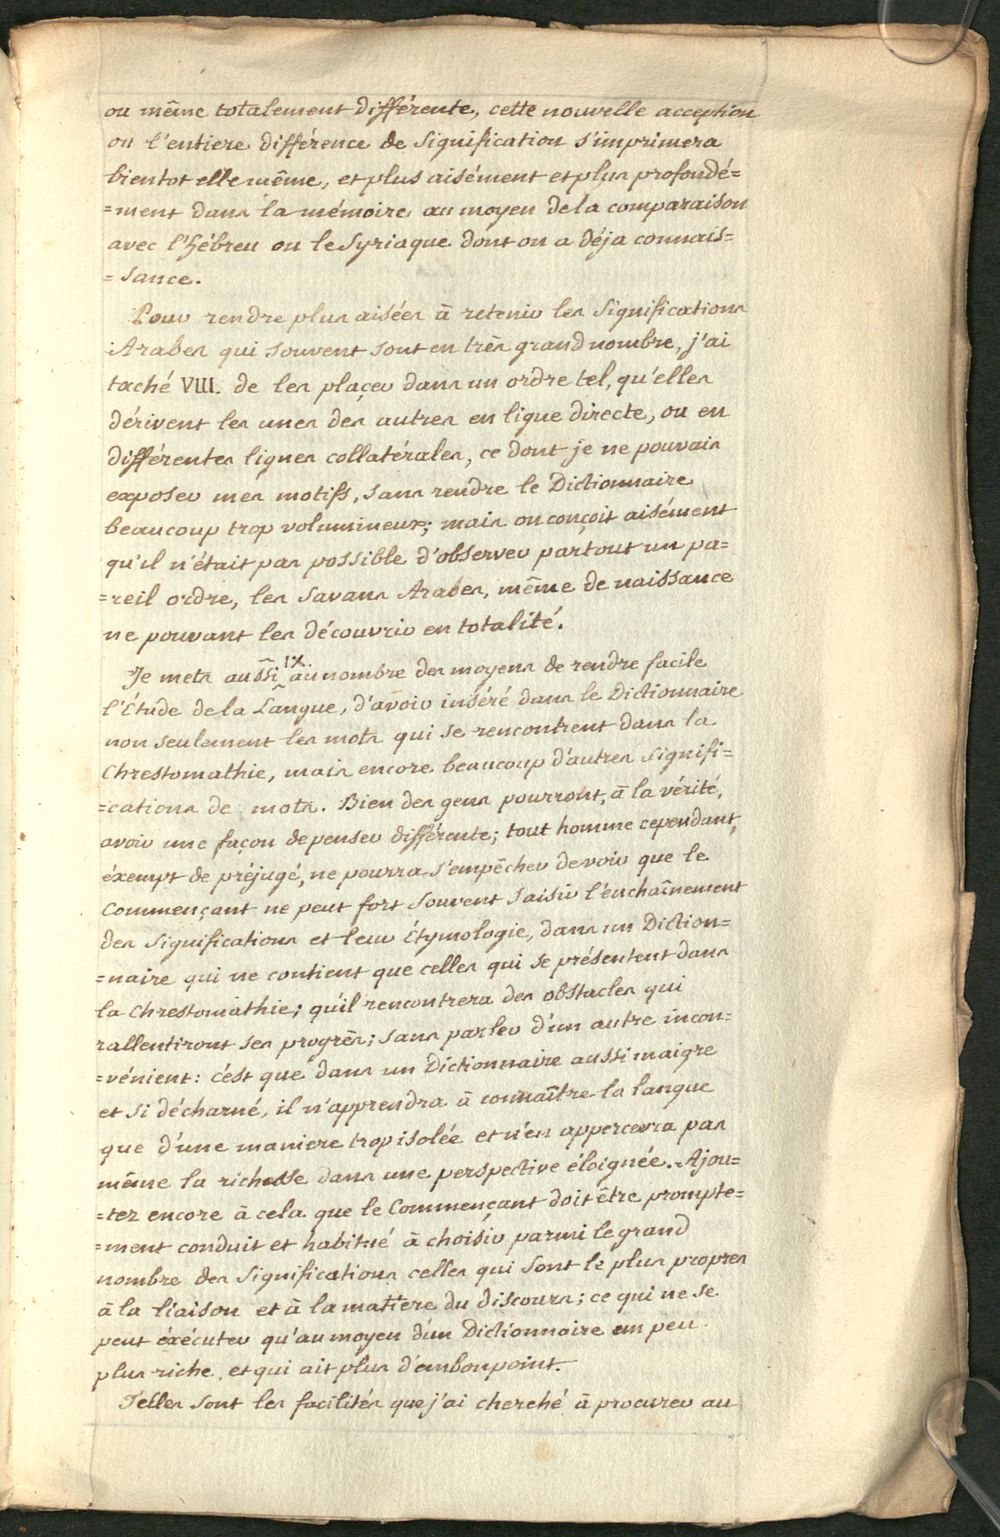 ou même totalement différente, cette nouvelle acception
ou l'entiere différence de signification s'imprimera
bientot elle même, et plus aisément et plus profondé=
=ment dans la mémoire au moyen de la comparaison
avec l'hébreu ou le Syriaque dont on a déja connais=
=sance.
Pour rendre plus aisées à retenir les significations
Arabes qui souvent sont en très grand nombre, j'ai
taché VIII. de les plaçer dans un ordre tel, qu'elles
dérivent les unes des autres en ligne directe, ou en
différentes lignes collatérales, ce dont je ne pouvais
exposer mes motifs, sans rendre le Dictionnaire
beaucoup trop volumineux; mais on conçoit aisément
qu'il n'était pas possible d'observer partout un pa=
=reil ordre, les savans Arabes, même de naissance
ne pouvant les découvrir en totalité.
Je mets aussi IX. au nombre des moyens de rendre facile
l'Étude de la Langue, d'avoir inséré dans le Dictionnaire
non seulement les mots qui se rencontrent dans la
Chrestomathie, mais encore beaucoup d'autres signifi=
=cations de mots. Bien des gens pourront, à la vérité,
avoir une façon de penser différente; tout homme cependant,
éxempt de préjugé, ne pourra s'empêcher de voir que le
Commençant ne peut fort souvent saisir l'enchaînement
des significations et leur Étymologie, dans un Diction=
=naire qui ne contient que celles qui se présentent dans
la Chrestomathie; qu'il rencontrera des obstacles qui
rallentiront ses progrès; sans parler d'un autre incon=
=vénient: c'est que dans un Dictionnaire aussi maigre
et si décharné, il n'apprendra à connaître la langue
que d'une maniere trop isolée et n'en appercevra pas
même la richesse dans une perspective éloignée. Ajou=
=tez encore à cela que le Commençant doit être prompte=
=ment conduit et habitué à choisir parmi le grand
nombre des significations celles qui sont le plus propres
à la liaison et à la matière du discours; ce qui ne se
peut éxécuter qu'au moyen d'un Dictionnaire un peu
plus riche, et qui ait plus d'embonpoint.
Telles sont les facilités que j'ai cherché à procurer au